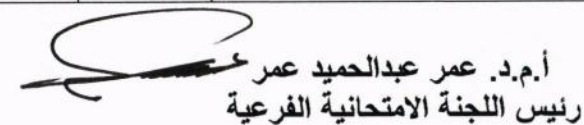 أ.م.د. عمر عبدالحميد عمر
رئيس اللجنة الامتحانية الفرعية